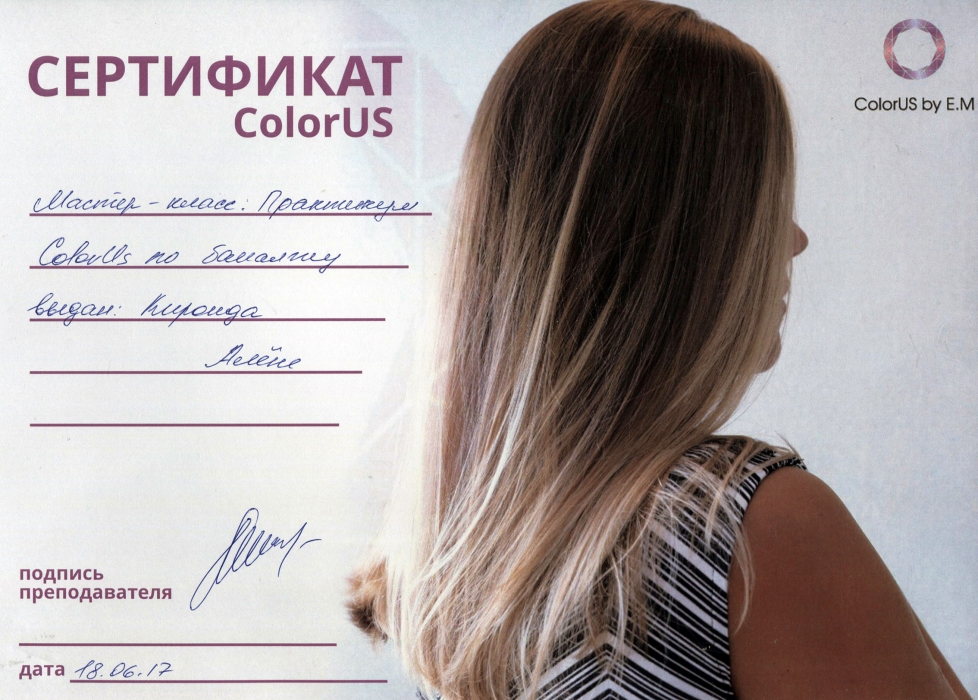 СЕРТИФИКАТ
ColorUS
ColorUS by E.M
Мастер-класс: Практикум
ColorUs по балаяжу
выдан: Кироида
Алёне
подпись
преподавателя
дата 18.06.17